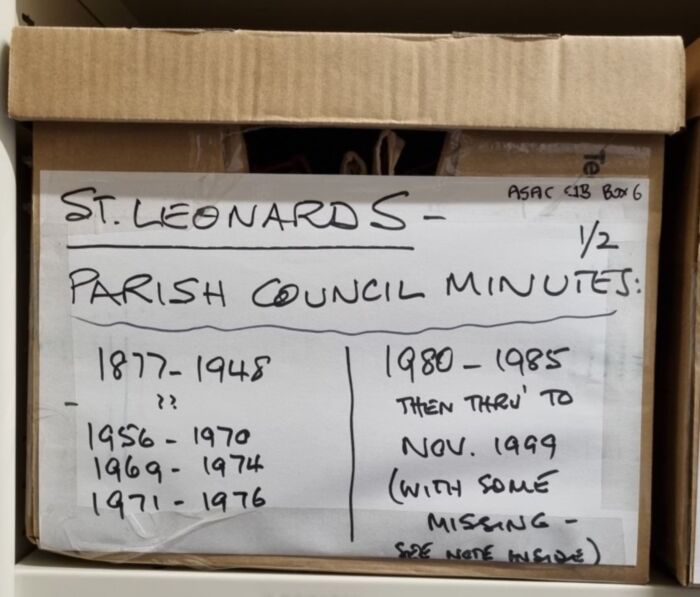 ASAC C1B BOX 6
ST. LEONARDS -
1/2
PARISH COUNCIL MINUTES:
1877 - 1948
- ??
1956 - 1970
1969 - 1974
1971 - 1976
1980 - 1985
THEN THRU' TO
NOV. 1999
(WITH SOME
MISSING -
SEE NOTE INSIDE)
Te